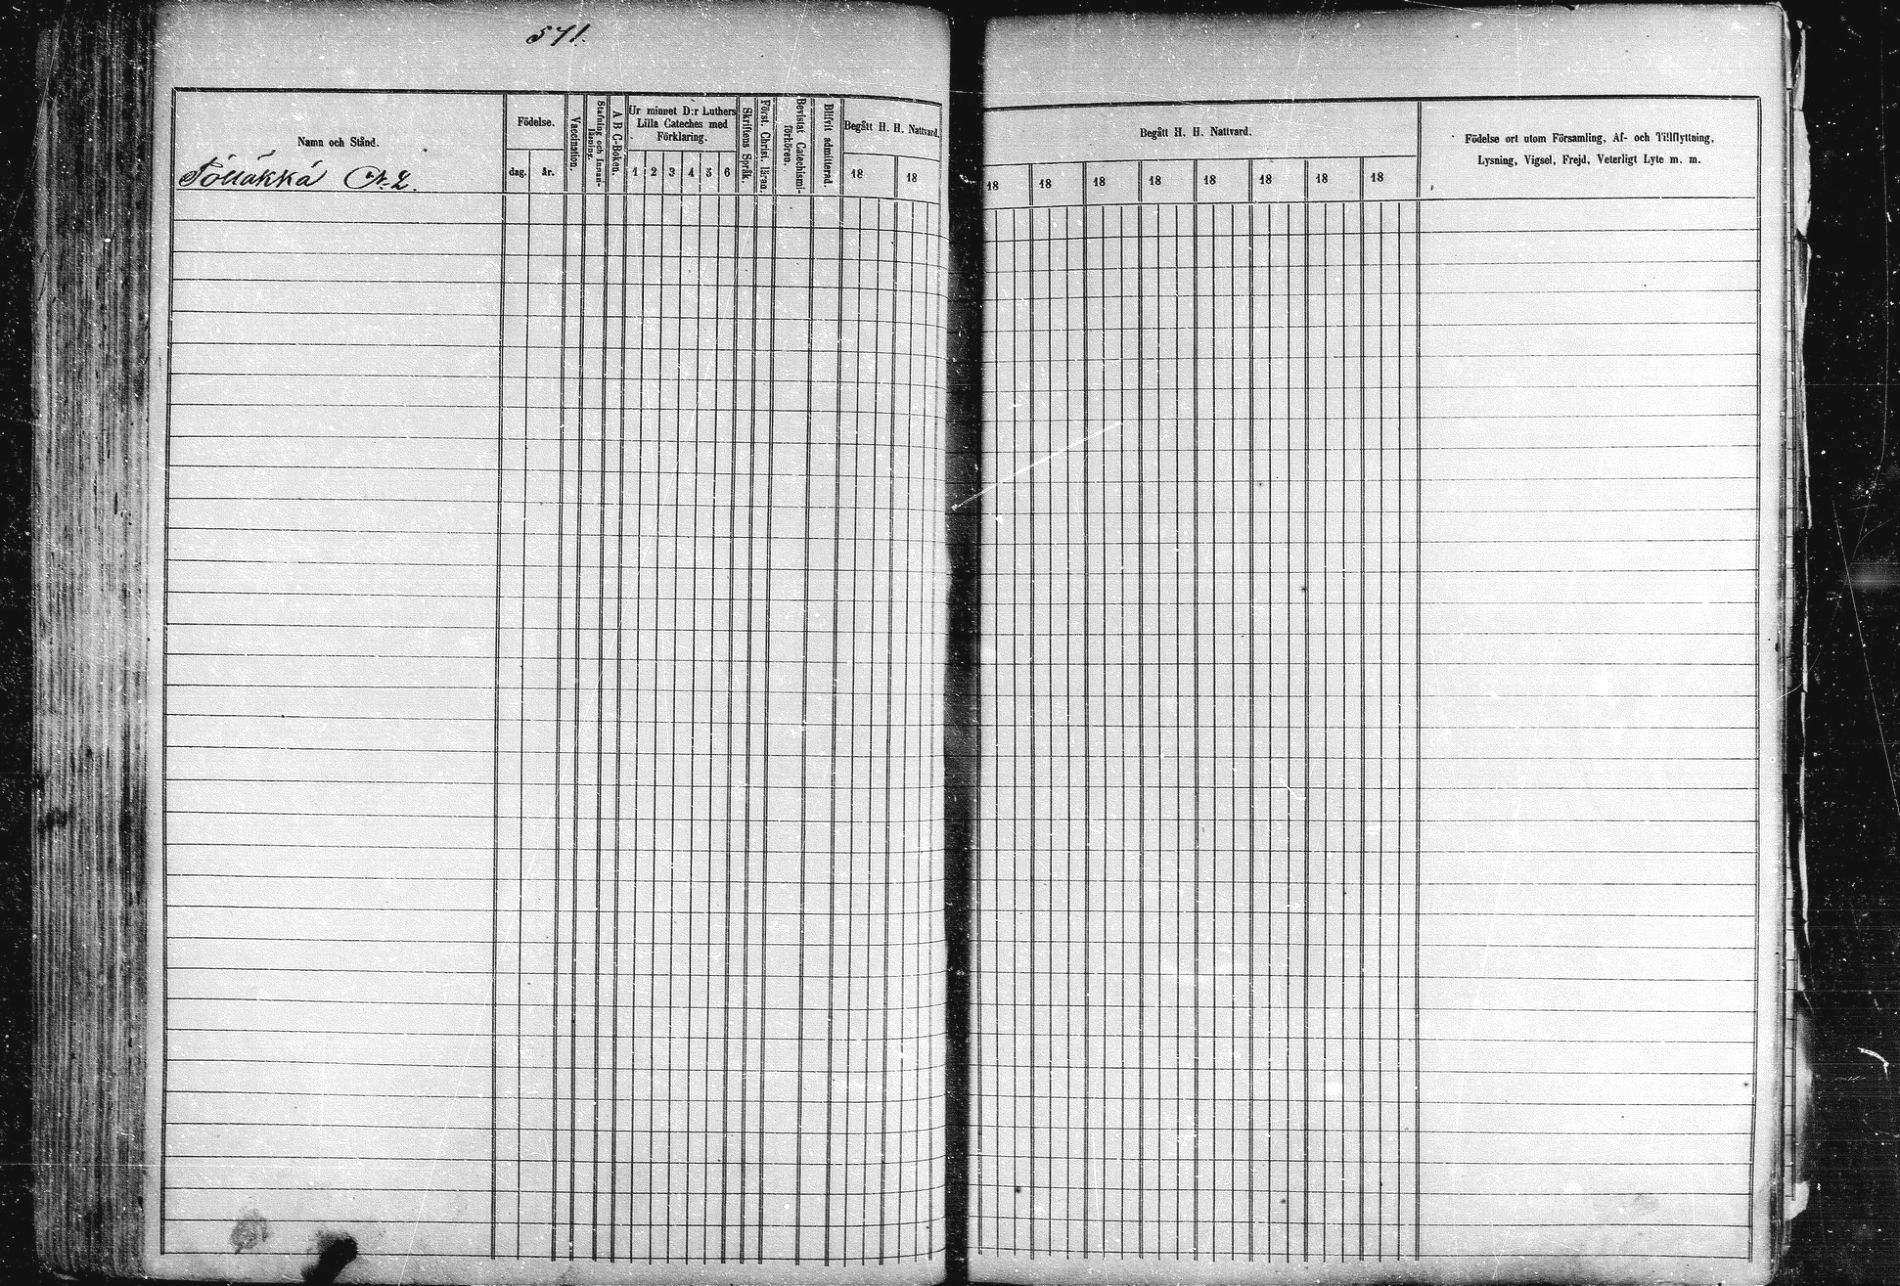 571.
Namn och Stånd.
Födelse.
dag.
år.
Vaccination.
Stafning och Innan-
läsning.
A B C-Boken.
Ur minnet D:r Luthers
Lilla Cateches med
Förklaring.
1 2 3 4 5 6
Skriftens Språk.
Först. Christ. läran.
Bevistat Catechismi-
förhören.
Blifvit admitterad.
Begått H. H. Nattvard.
18 18
N:2.
Begått H. H. Nattvard.
18 18 18 18 18 18 18 18
Födelse ort utom Församling, Af- och Tillflyttning,
Lysning, Vigsel, Frejd, Veterligt Lyte m. m.